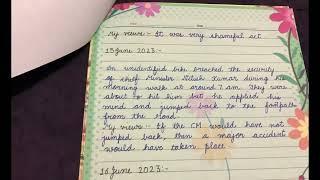 My views:- It was very shameful act
15 June 2023:-
An unidentified bike breached the security
of chief Minister Nitish Kumar during his
morning walk at around 7 am. They were
about to hit him but he applied his
mind and jumped back to the footpath
from the Road.
My views:- If the CM would have not
jumped back, then a major accident
would have taken place.
16 June 2023:-